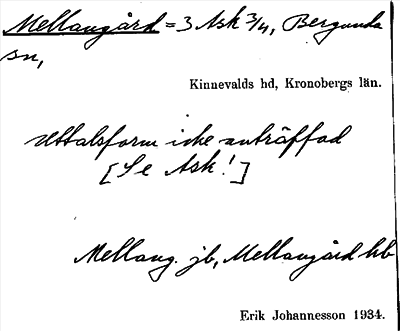 Mellangård = 3 Ask 3/4, Bergunda
sn,
Kinnevalds hd, Kronobergs län.
Uttalsform icke anträffad
[Se Ask!]
Mellang. jb, Mellangård hb
Erik Johannesson 1934.